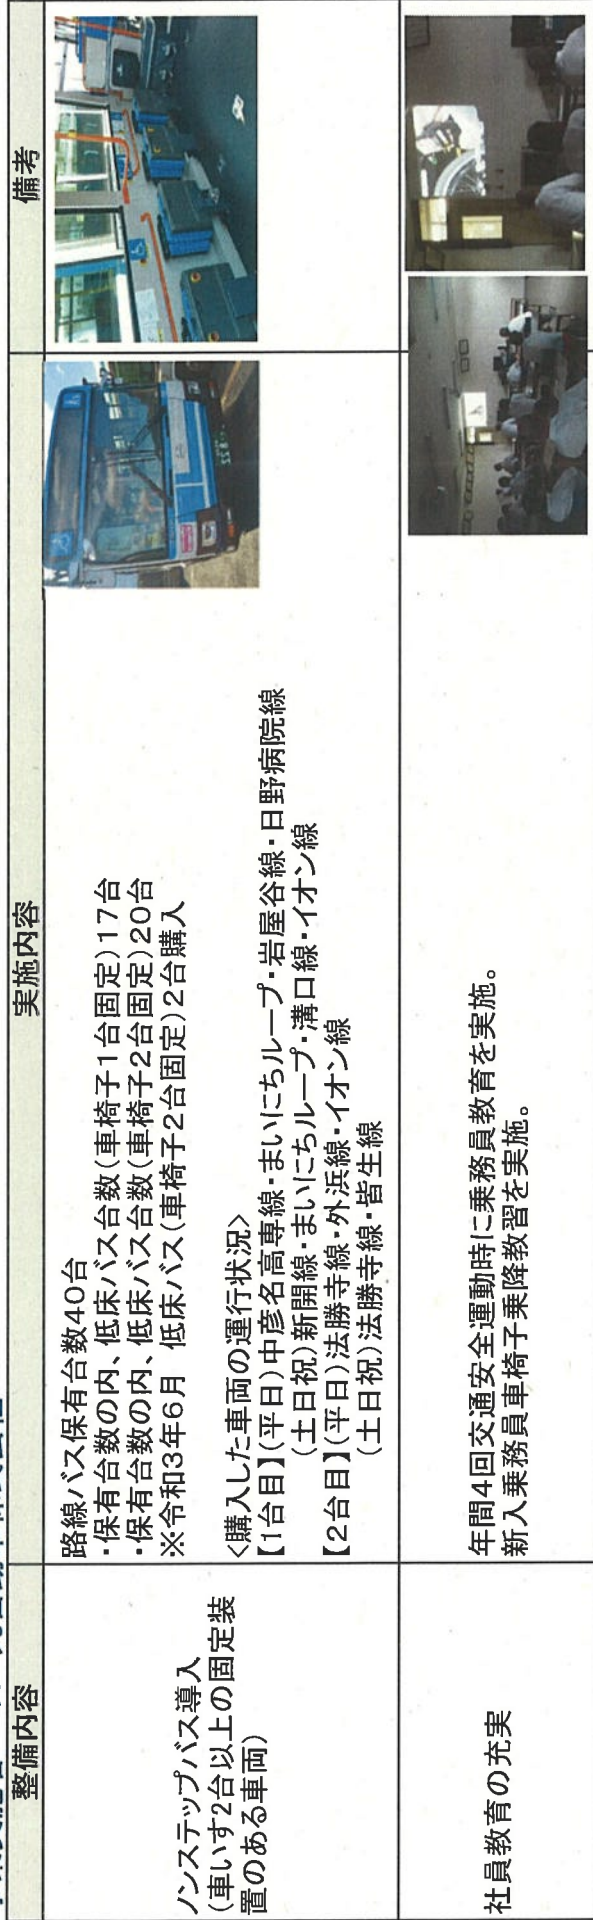 整備内容
実施内容
備考
ノンステップバス導入
(車いす2台以上の固定装
置のある車両)
路線バス保有台数40台
・保有台数の内、低床バス台数(車椅子1台固定)17台
・保有台数の内、低床バス台数(車椅子2台固定)20台
※令和3年6月 低床バス(車椅子2台固定)2台購入
<購入した車両の運行状況>
【1台目】(平日)中彦名高専線・まいにちループ・岩屋谷線・日野病院線
(土日祝)新開線・まいにちループ・溝口線・イオン線
【2台目】(平日)法勝寺線・外浜線・イオン線
(土日祝)法勝寺線・皆生線
社員教育の充実
年間4回交通安全運動時に乗務員教育を実施。
新入乗務員車椅子乗降教習を実施。